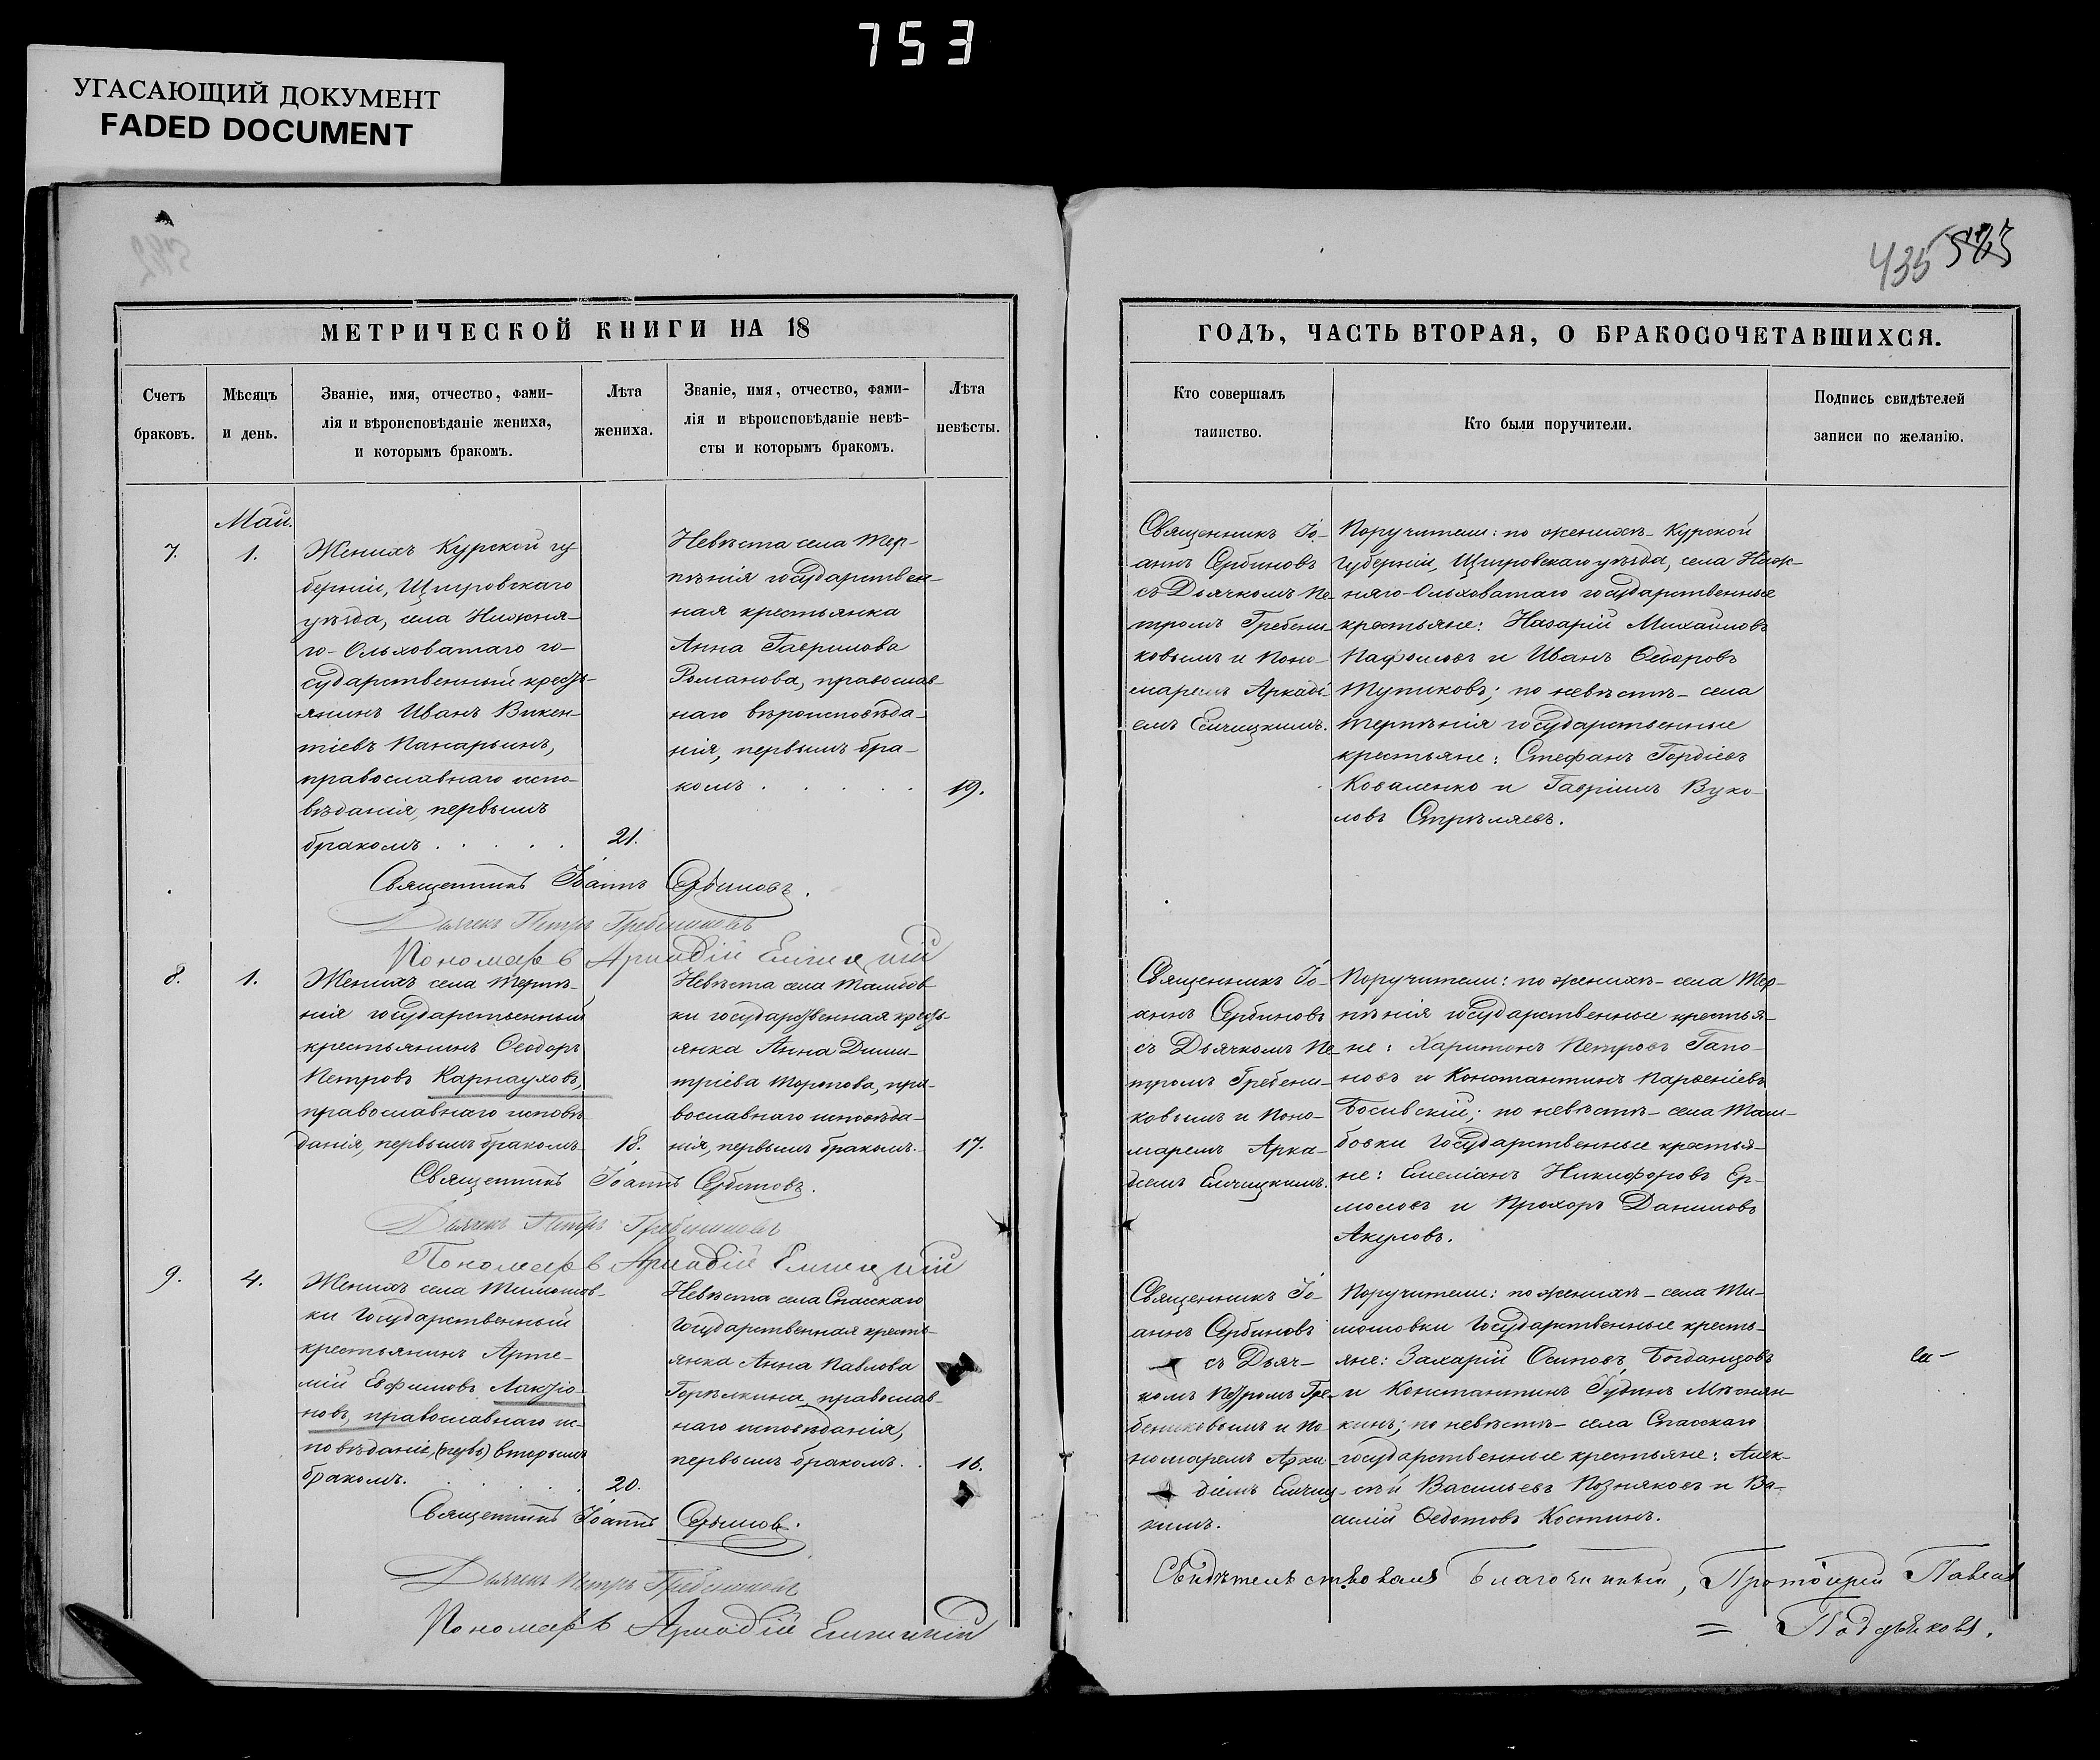 753
УГАСАЮЩИЙ ДОКУМЕНТ
FADED DOCUMENT
МЕТРИЧЕСКОЙ КНИГИ НА 18
Счетъ браковъ.
Мѣсяцъ и день.
Званіе, имя, отчество, фами-
лія и вѣроисповѣданіе жениха,
и которымъ бракомъ.
Лѣта жениха.
Званіе, имя, отчество, фами-
лія и вѣроисповѣданіе невѣ-
сты и которымъ бракомъ.
Лѣта невѣсты.
Маи.
7.
1.
Женихъ Курской гу-
берніи, Щигровскаго
уѣзда, села Нижня-
го-Ольховатаго го-
сударственный кресть-
янинъ Иванъ Викен-
тіевъ Панарьинъ,
православнаго испо-
вѣданія, первымъ
бракомъ . . . . .
21.
Невѣста села Тер-
пѣнія государствен-
ная крестьянка
Анна Гаврилова
Романова, православ-
наго вѣроисповѣда-
нія, первымъ бра-
комъ . . . . .
19.
Священникъ Іоаннъ Сербиновъ.
Дьячекъ Петръ Гребениковъ
Пономарь Аркадій Елчицкій
8.
1.
Женихъ села Терпѣ-
нія государственный
крестьянинъ Ѳеодоръ
Петровъ Карнауховъ,
православнаго исповѣ-
данія, первымъ бракомъ
18.
Невѣста села Тамбов-
ки государственная кресть-
янка Анна Дими-
тріева Торопова, пра-
вославнаго исповѣда-
нія, первымъ бракомъ.
17.
Священникъ Іоаннъ Сербиновъ.
Дьячекъ Петръ Гребениковъ
Пономарь Аркадій Елчицкій
9.
4.
Женихъ села Тимошов-
ки Государственный
крестьянинъ Арте-
мій Евфимовъ Лактіо-
новъ, православнаго ис-
повѣданія, (первъ) вторымъ
бракомъ.
20.
Невѣста села Спасскаго
Государственная кресть-
янка Анна Павлова
Горѣлкина, православ-
наго исповѣданія,
первымъ бракомъ. .
16.
Священникъ Іоаннъ Сербиновъ.
Дьячекъ Петръ Гребениковъ
Пономарь Аркадій Елчицкій
435 543
ГОДЪ, ЧАСТЬ ВТОРАЯ, О БРАКОСОЧЕТАВШИХСЯ.
Кто совершалъ таинство.
Кто были поручители.
Подпись свидѣтелей записи по желанію.
Священникъ Іо-
аннъ Сербиновъ
съ Дьячкомъ Пе-
тромъ Гребени-
ковымъ и Поно-
маремъ Аркаді-
емъ Елчицкимъ.
Поручители: по женихѣ - Курской
Губерніи, Щигровскаго уѣзда, села Ниж-
няго-Ольховатаго государственные
крестьяне: Назарій Михаиловъ
Пафомовъ и Иванъ Ѳедоровъ
Тупиковъ; по невѣстѣ - села
Терпѣнія государственные
крестьяне: Стефанъ Гордіевъ
Коваленко и Гавріилъ Вуко-
ловъ Стрѣляевъ.
Священникъ Іо-
аннъ Сербиновъ
съ Дьячкомъ Пе-
тромъ Гребени-
ковымъ и Поно-
маремъ Арка-
діемъ Елчицкимъ.
Поручители: по женихѣ - села Тер-
пѣнія государственные крестья-
не: Харитонъ Петровъ Гапо-
новъ и Константинъ Парѳеніевъ
Босивскій; по невѣстѣ - села Там-
бовки государственные крестья-
не: Емеліанъ Никифоровъ Ер-
моловъ и Прохоръ Даниловъ
Акуловъ.
Священникъ Іо-
аннъ Сербиновъ
съ Дьяч-
комъ Петромъ Гре-
бениковымъ и По-
номаремъ Арка-
діемъ Елчиц-
кимъ.
Поручители: по женихѣ - села Ти-
мошовки Государственные кресть-
яне: Захарій Осиповъ Богданцовъ
и Константинъ Гудинъ Мѣснян-
кинъ; по невѣстѣ - села Спасскаго
государственные крестьяне: Алек-
сѣй Васильевъ Позняковъ и Ва-
силій Ѳедотовъ Костинъ.
Свидѣтельствовалъ Благочинный, Протоіерей Павелъ
= Поддубковъ.